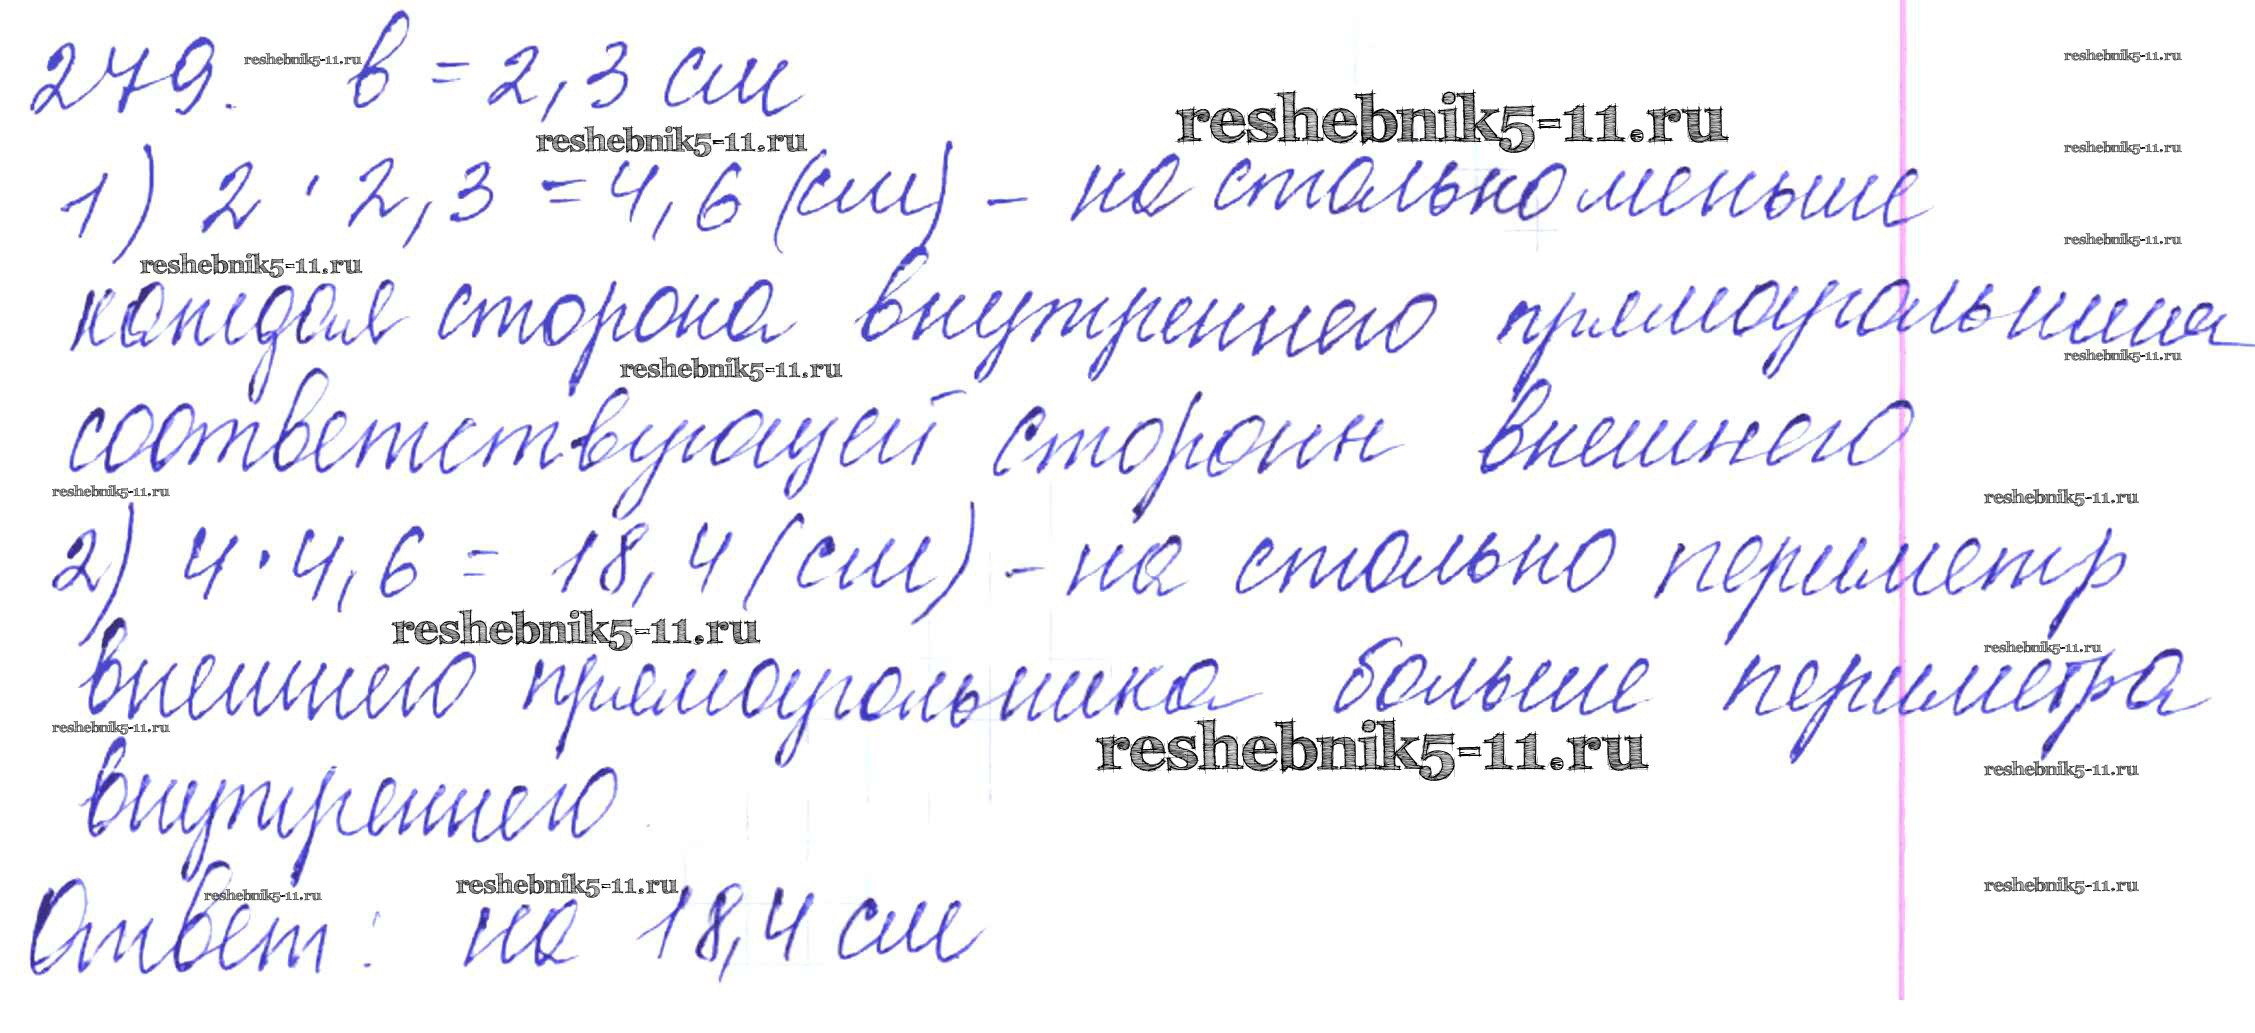 279. в = 2,3 см
reshebnik5-11.ru
reshebnik5-11.ru
reshebnik5-11.ru
reshebnik5-11.ru
reshebnik5-11.ru
1) 2 · 2,3 = 4,6 (см) – на столько меньше
reshebnik5-11.ru
reshebnik5-11.ru
каждая сторона внутреннего прямоугольника
reshebnik5-11.ru
reshebnik5-11.ru
соответствующей сторон внешнего
reshebnik5-11.ru
reshebnik5-11.ru
2) 4 · 4,6 = 18,4 (см) – на столько периметр
reshebnik5-11.ru
reshebnik5-11.ru
внешнего прямоугольника больше периметра
reshebnik5-11.ru
reshebnik5-11.ru
reshebnik5-11.ru
внутреннего
reshebnik5-11.ru
reshebnik5-11.ru
reshebnik5-11.ru
Ответ: на 18,4 см